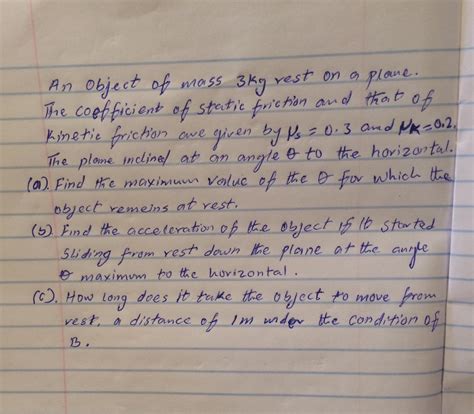 An object of mass 3kg rest on a plane.
The coefficient of static friction and that of
kinetic friction are given by μs = 0.3 and μk = 0.2.
The plane inclined at an angle θ to the horizontal.
(a). Find the maximum value of the θ for which the
object remeins at rest.
(b). Find the acceleration of the object if it started
sliding from rest down the plane at the angle
θ maximum to the horizontal.
(c). How long does it take the object to move from
rest, a distance of 1m under the condition of
B.